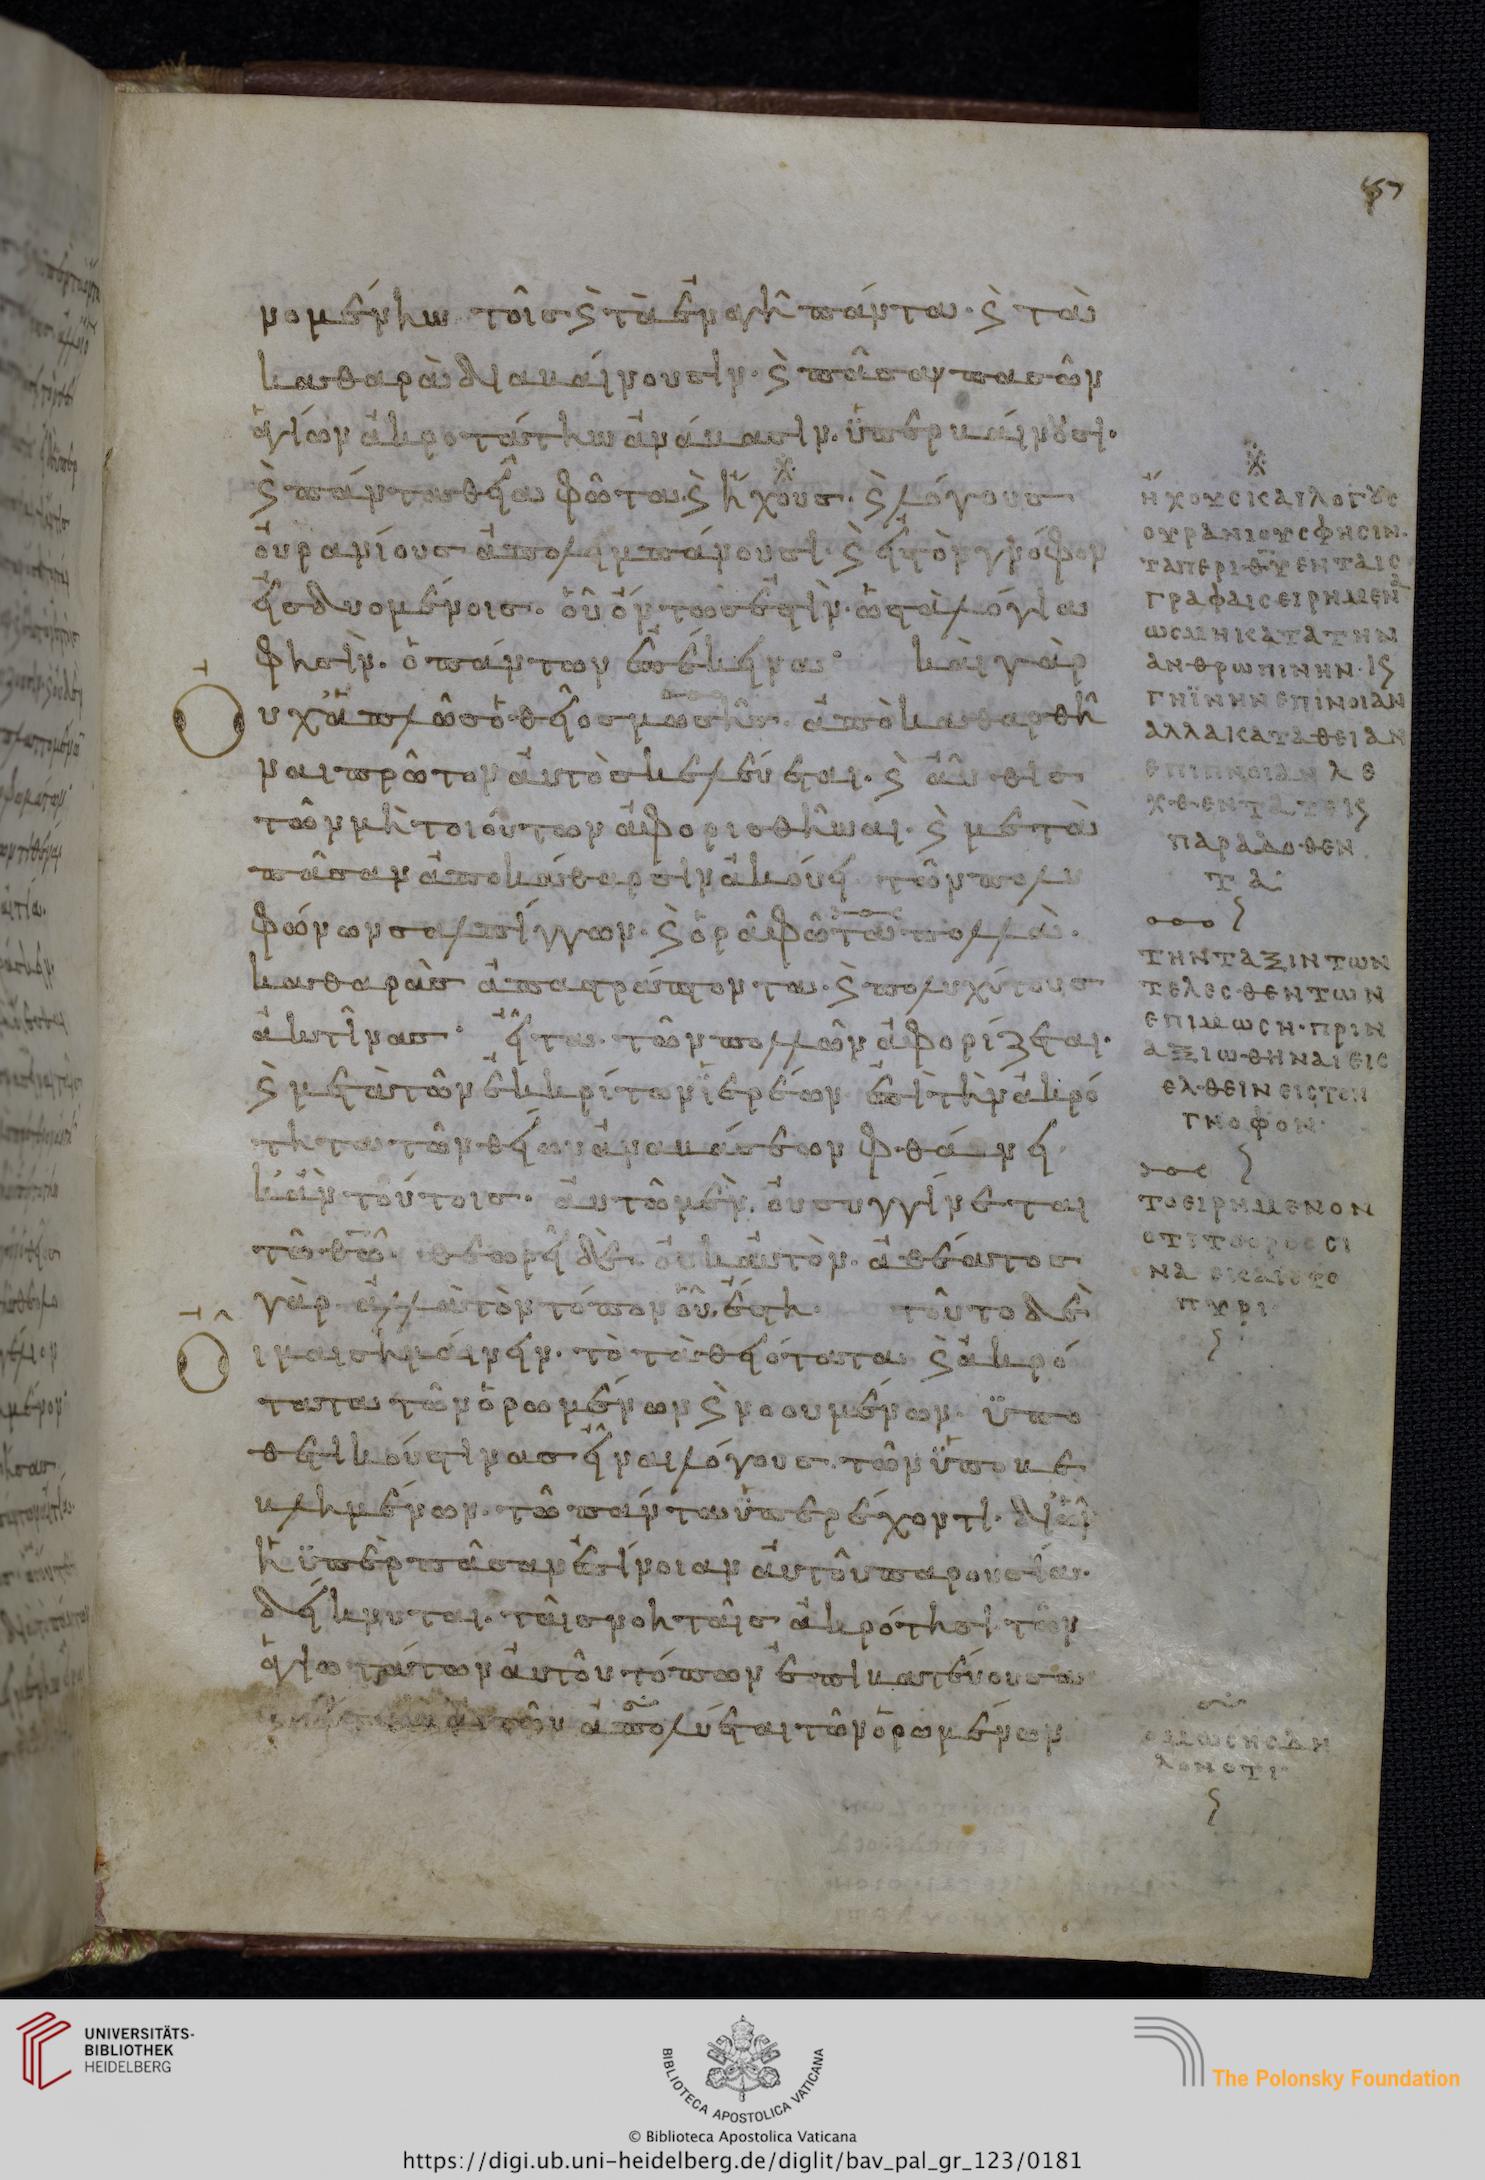 νομένης τοῖς ϗ τὰ ἐναγῆ πάντα· ϗ τὰ
καθαρὰ διαβαίνουσιν· ϗ πᾶσαν πασῶν
ἁγίων ἀκροτάτων ἀνάβασιν· ὑπερβαίνουσι·
ϗ πάντα θεῖα φῶτα ϗ ἤχους· ϗ λόγους
οὐρανίους ἀπολιμπάνουσι· ϗ εἰς τὸν γνόφον
εἰσδυομένοις· οὗ ὄντως ἐστὶν· ὡς τὰ λόγια
φησὶν· ὁ πάντων ἐπέκεινα· καὶ γὰρ
Ουχ ἁπλῶς ὁ θεῖος μωσῆς· ἀποκαθαρθῆ
ναι πρῶτον αὐτὸς κελεύεται· ϗ αὖθις
τῶν μὴ τοιούτων ἀφορισθῆναι· ϗ μετὰ
πᾶσαν ἀποκάθαρσιν ἀκούει τῶν πολυ
φώνων σαλπίγγων· ϗ ὁρᾶ φῶτα πολλὰ·
καθαρὰς ἀπαστράπτοντα· ϗ πολυχύτους
ἀκτῖνας· εἶτα τῶν πολλῶν ἀφορίζεται·
ϗ μετὰ τῶν ἐκκρίτων ἱερέων ἐπὶ τὴν ἀκρό
τητα τῶν θείων ἀναβάσεων φθάνει
κἀν τούτοις· αὐτῶ μὲν οὐ συγγίνεται
τῶ θῶ· θεωρεῖ δὲ οὐκ αὐτὸν· ἀθέατος
γὰρ· ἀλλὰ τὸν τόπον οὗ ἔστη· τοῦτο δὲ
Οιμαι σημαίνειν· τὸ τὰ θειότατα ϗ ἀκρό
τατα τῶν ὁρωμένων ϗ νοουμένων· ὑπο
θετικούς τινας εἶναι λόγους τῶν ὑποβε
βλημένων· τῶ πάντα ὑπερέχοντι· δι' ὧν
ἡ ὑπὲρ πᾶσαν ἐπίνοιαν αὐτοῦ παρουσία·
δείκνυται· ταῖς νοηταῖς ἀκρότησι τῶν
ἁγιωτάτων αὐτοῦ τόπων ἐπιβατεύουσα
αὐτῶν ἀπολύεται τῶν ὁρωμένων
ἤχους καὶ λόγους
ουρανιους φησιν·
τα περι θῦ εν ταις
γραφαις ειρημενα
ως μη κατα την
ανθρωπινην· ϗ
γηϊνην επινοιαν
αλλα κατα θειαν
επιπνοιαν λε
χθεντα τε ϗ
παραδοθεν
τα·
την ταξιν των
τελεσθεντων
επι μωση· πριν
αξιωθηναι εισ
ελθειν εις τον
γνοφον·
το ειρημενον
οτι το ορος σι
να εκαιετο
πυρι·
ο μωσης δη
λονοτι·
UNIVERSITÄTS-
BIBLIOTHEK
HEIDELBERG
BIBLIOTECA APOSTOLICA VATICANA
The Polonsky Foundation
© Biblioteca Apostolica Vaticana
https://digi.ub.uni-heidelberg.de/diglit/bav_pal_gr_123/0181